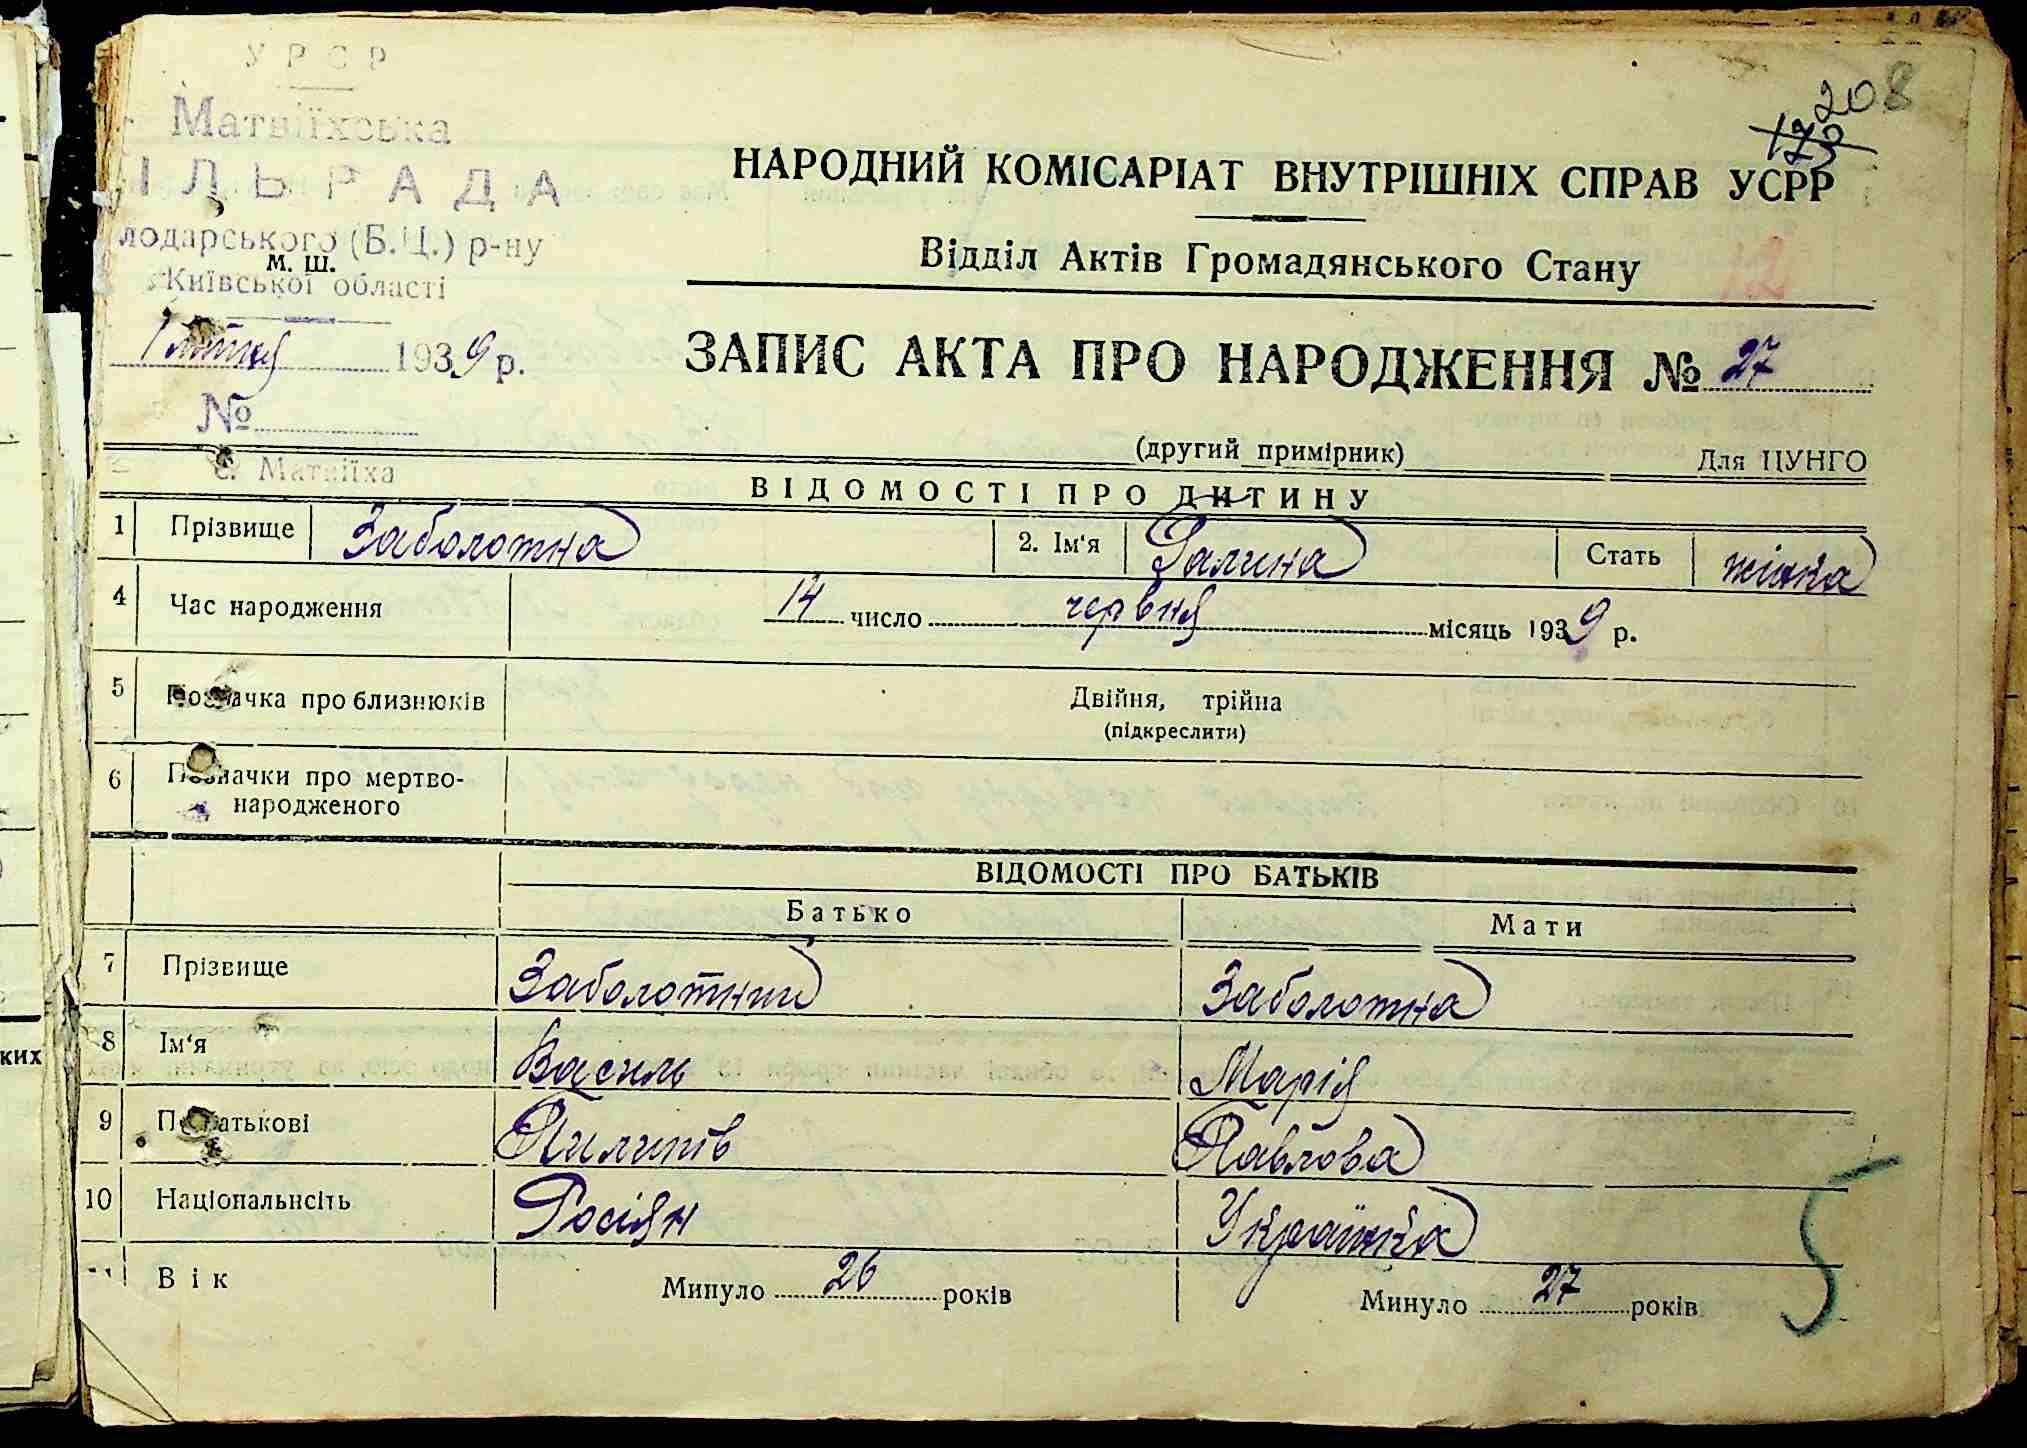 УРСР
208
173
Матвіїхська
ІЛЬРАДА
лодарського (Б.Ц.) р-ну
м. ш.
Київської області
НАРОДНИЙ КОМІСАРІАТ ВНУТРІШНІХ СПРАВ УСРР
Відділ Актів Громадянського Стану
12
1 липня 1939 р.
ЗАПИС АКТА ПРО НАРОДЖЕННЯ № 27
№
(другий примірник) Для ЦУНГО
с. Матвіїха
ВІДОМОСТІ ПРО ДИТИНУ
1 Прізвище Заболотна 2. Ім'я Галина Стать жінка
4 Час народження 14 число червня місяць 1939 р.
5 Позначка про близнюків Двійня, трійна
(підкреслити)
6 Позначки про мертво-
народженого
ВІДОМОСТІ ПРО БАТЬКІВ
Батько Мати
7 Прізвище Заболотний Заболотна
8 Ім'я Василь Марія
9 По батькові Пилипів Павлова
10 Національність Росіян Українка
Вік Минуло 26 років Минуло 27 років
5
ких